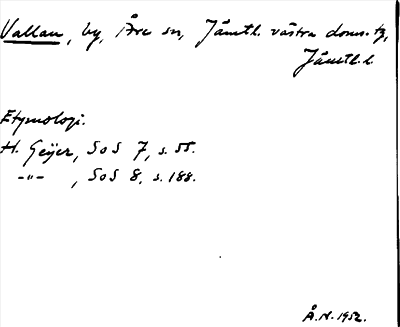 Vallan, by, Åre sn, Jämtl. västra doms. tg,
Jämtl. l.
Etymologi.
H. Geijer, SoS 7, s. 55.
-"- , SoS 8, s. 188.
Å.N. 1952.